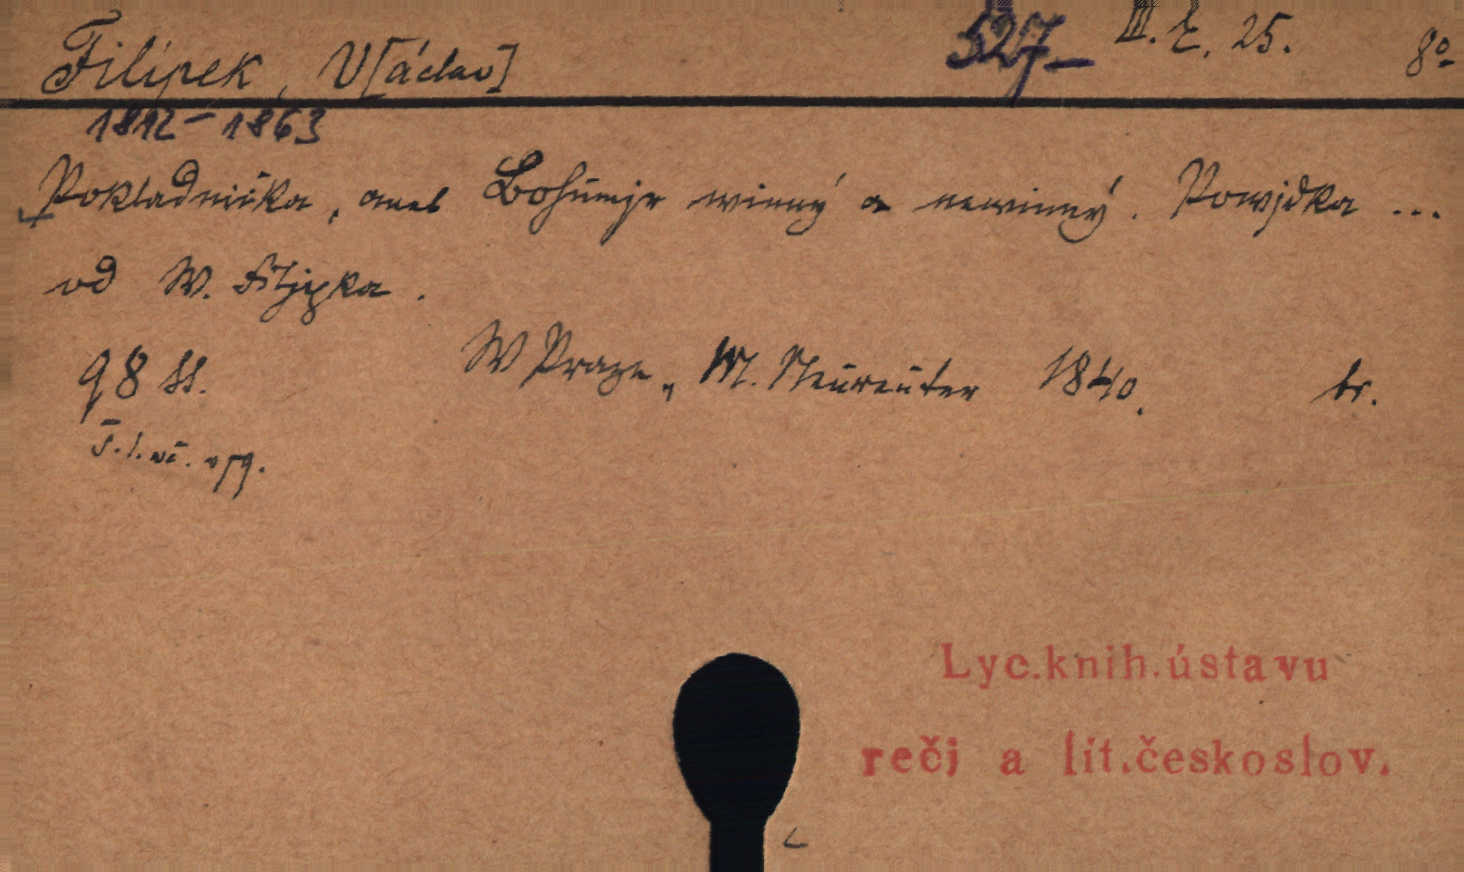 Filípek, V[áclav] 527- III. E. 25. 8°
1812-1863
Pokladnička, aneb Bohumjr winný a newinný. Powjdka ...
od W. Filjpka.
98 ss. W Praze, M. Neureuter 1840. br.
Lyc.knih.ústavu
reči a lit.českoslov.